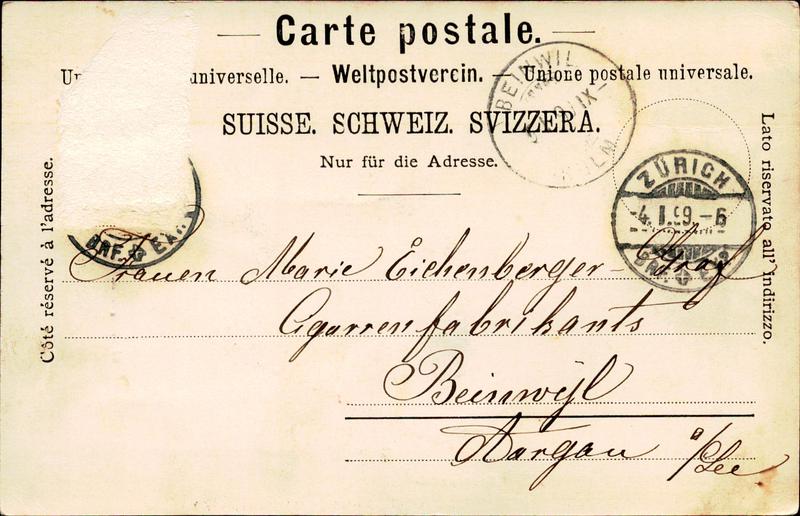 Carte postale.
universelle. — Weltpostverein. — Unione postale universale.
SUISSE. SCHWEIZ. SVIZZERA.
Nur für die Adresse.
Côté réservé à l'adresse.
Lato riservato all' indirizzo.
BEINWIL
ZÜRICH
-4.I.99.-6
BRF.
BRF.
Frauen Marie Eichenberger-Graf
Cigarrenfabrikants
Beinwyl
Aargau a/See